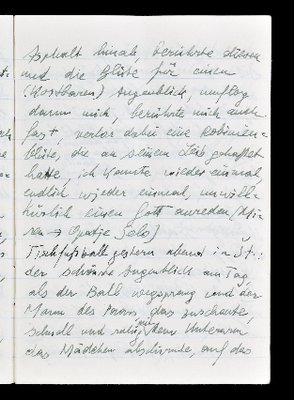 Asphalt hinab, berührte diesen
und die Blüte für einen
(kostbaren) Augenblick, umflog
dann mich, berührte mich auch
fast, verlor dabei eine Robinien-
blüte, die an seinem Leib gehaftet
hatte, ich konnte wieder einmal
endlich wieder einmal, unwill-
kürlich einen Gott anreden (Mi-
ren → Opatje Selo)
Tischfußball gestern abend in St.:
der schönste Augenblick am Tag,
als der Ball wegsprang und der
Mann des Paars, das zuschaute,
schnell und ruhig mit dem Unterarm
das Mädchen abschirmte, auf das